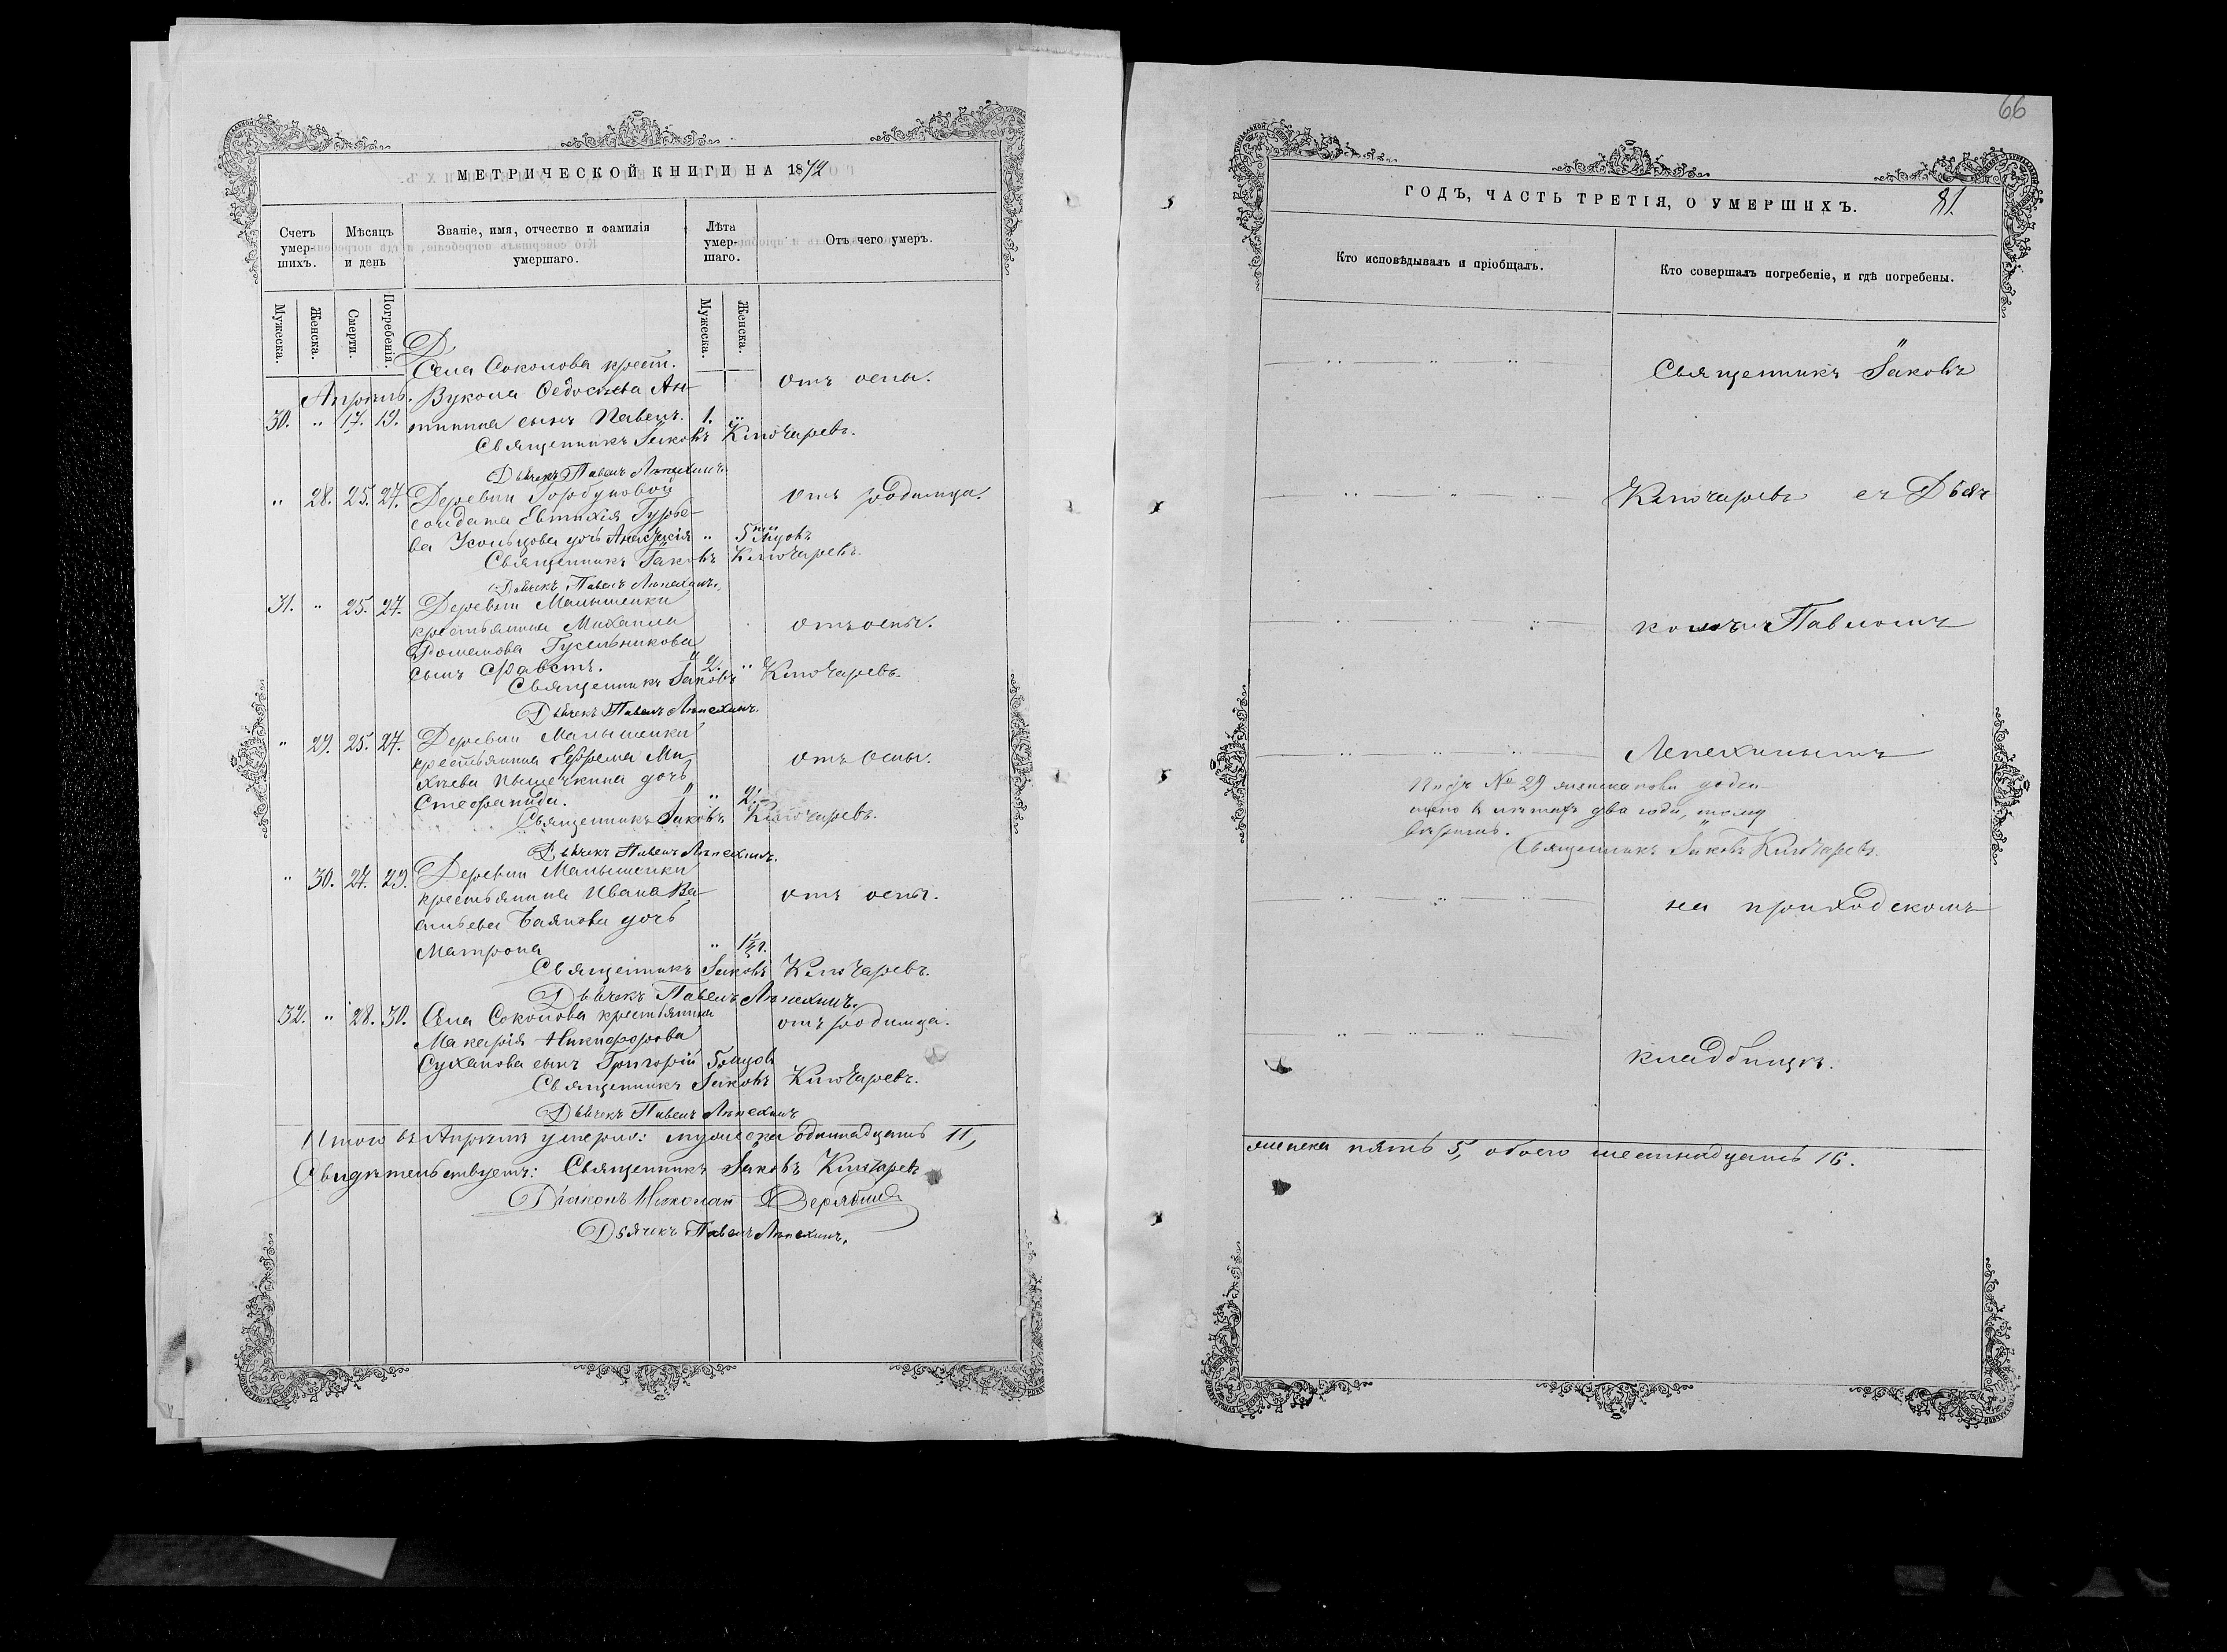 МЕТРИЧЕСКОЙ КНИГИ НА 1872
Счетъ умер-шихъ.
Мѣсяцъ и день
Званіе, имя, отчество и фамилія умершаго.
Лѣта умер-шаго.
Отъ чего умеръ.
Мужеска.
Женска.
Смерти.
Погребенія.
Мужеска.
Женска.
Села Соколова крест.
Апрѣль. Вукола Ѳедосѣева Ан- отъ оспы.
30. " 17. 19. типина сынъ Павелъ. 1. "
Священникъ Іаковъ Ключаревъ.
Дьячекъ Павелъ Лѣпехинъ.
" 28. 25. 27. Деревни Горбуновой отъ родимца.
солдата Евтихія Гурье-
ва Усольцова дочь Анастасія " 5ти мцовъ
Священникъ Іаковъ Ключаревъ.
Дьячекъ Павелъ Лѣпехинъ.
31. " 25. 27. Деревни Малышенки
крестьянина Михаила отъ оспы.
Гусельникова
сынъ Фавстъ. 2. "
Священникъ Іаковъ Ключаревъ.
Дьячекъ Павелъ Лѣпехинъ.
" 29. 25. 27. Деревни Малышенки
крестьянина Ефрема Ми- отъ оспы.
хѣева Пышечкина дочь
Стефанида. " 2.
Священникъ Іаковъ Ключаревъ.
Дьячекъ Павелъ Лѣпехинъ.
" 30. 27. 29. Деревни Малышенки
крестьянина Ивана Ва- отъ оспы.
сильева Баянова дочь
Матрона " 1½
Священникъ Іаковъ Ключаревъ.
Дьячекъ Павелъ Лѣпехинъ.
32. " 28. 30. Села Соколова крестьянина отъ родимца.
Макарія Никифорова
Суханова сынъ Григорій 5 мцовъ
Священникъ Іаковъ Ключаревъ.
Дьячекъ Павелъ Лѣпехинъ
Итого въ Апрѣлѣ умерло: мужеска одиннадцать 11,
Свидѣтельствуетъ: Священникъ Іаковъ Ключаревъ
Діаконъ Николай Дерябинъ
Дьячекъ Павелъ Лѣпехинъ.
66
ГОДЪ, ЧАСТЬ ТРЕТІЯ, О УМЕРШИХЪ.
81.
Кто исповѣдывалъ и пріобщалъ.
Кто совершалъ погребеніе, и гдѣ погребены.
Священникъ Іаковъ
Ключаревъ съ Дьяч
комъ Павломъ
Лепехинымъ
№ 29
два года, тому
вѣрить.
Священникъ Іаковъ Ключаревъ.
на приходскомъ
кладбищѣ.
женска пять 5, обоего шестнадцать 16.